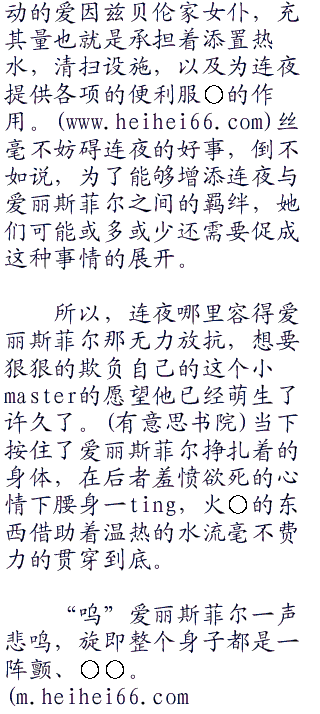 动的爱因兹贝伦家女仆，充
其量也就是承担着添置热
水，清扫设施，以及为连夜
提供各项的便利服〇的作
用。(www.heihei66.com)丝
毫不妨碍连夜的好事，倒不
如说，为了能够增添连夜与
爱丽斯菲尔之间的羁绊，她
们可能或多或少还需要促成
这种事情的展开。
所以，连夜哪里容得爱
丽斯菲尔那无力放抗，想要
狠狠的欺负自己的这个小
master的愿望他已经萌生了
许久了。(有意思书院)当下
按住了爱丽斯菲尔挣扎着的
身体，在后者羞愤欲死的心
情下腰身一ting，火〇的东
西借助着温热的水流毫不费
力的贯穿到底。
“呜”爱丽斯菲尔一声
悲鸣，旋即整个身子都是一
阵颤、〇〇。
(m.heihei66.com